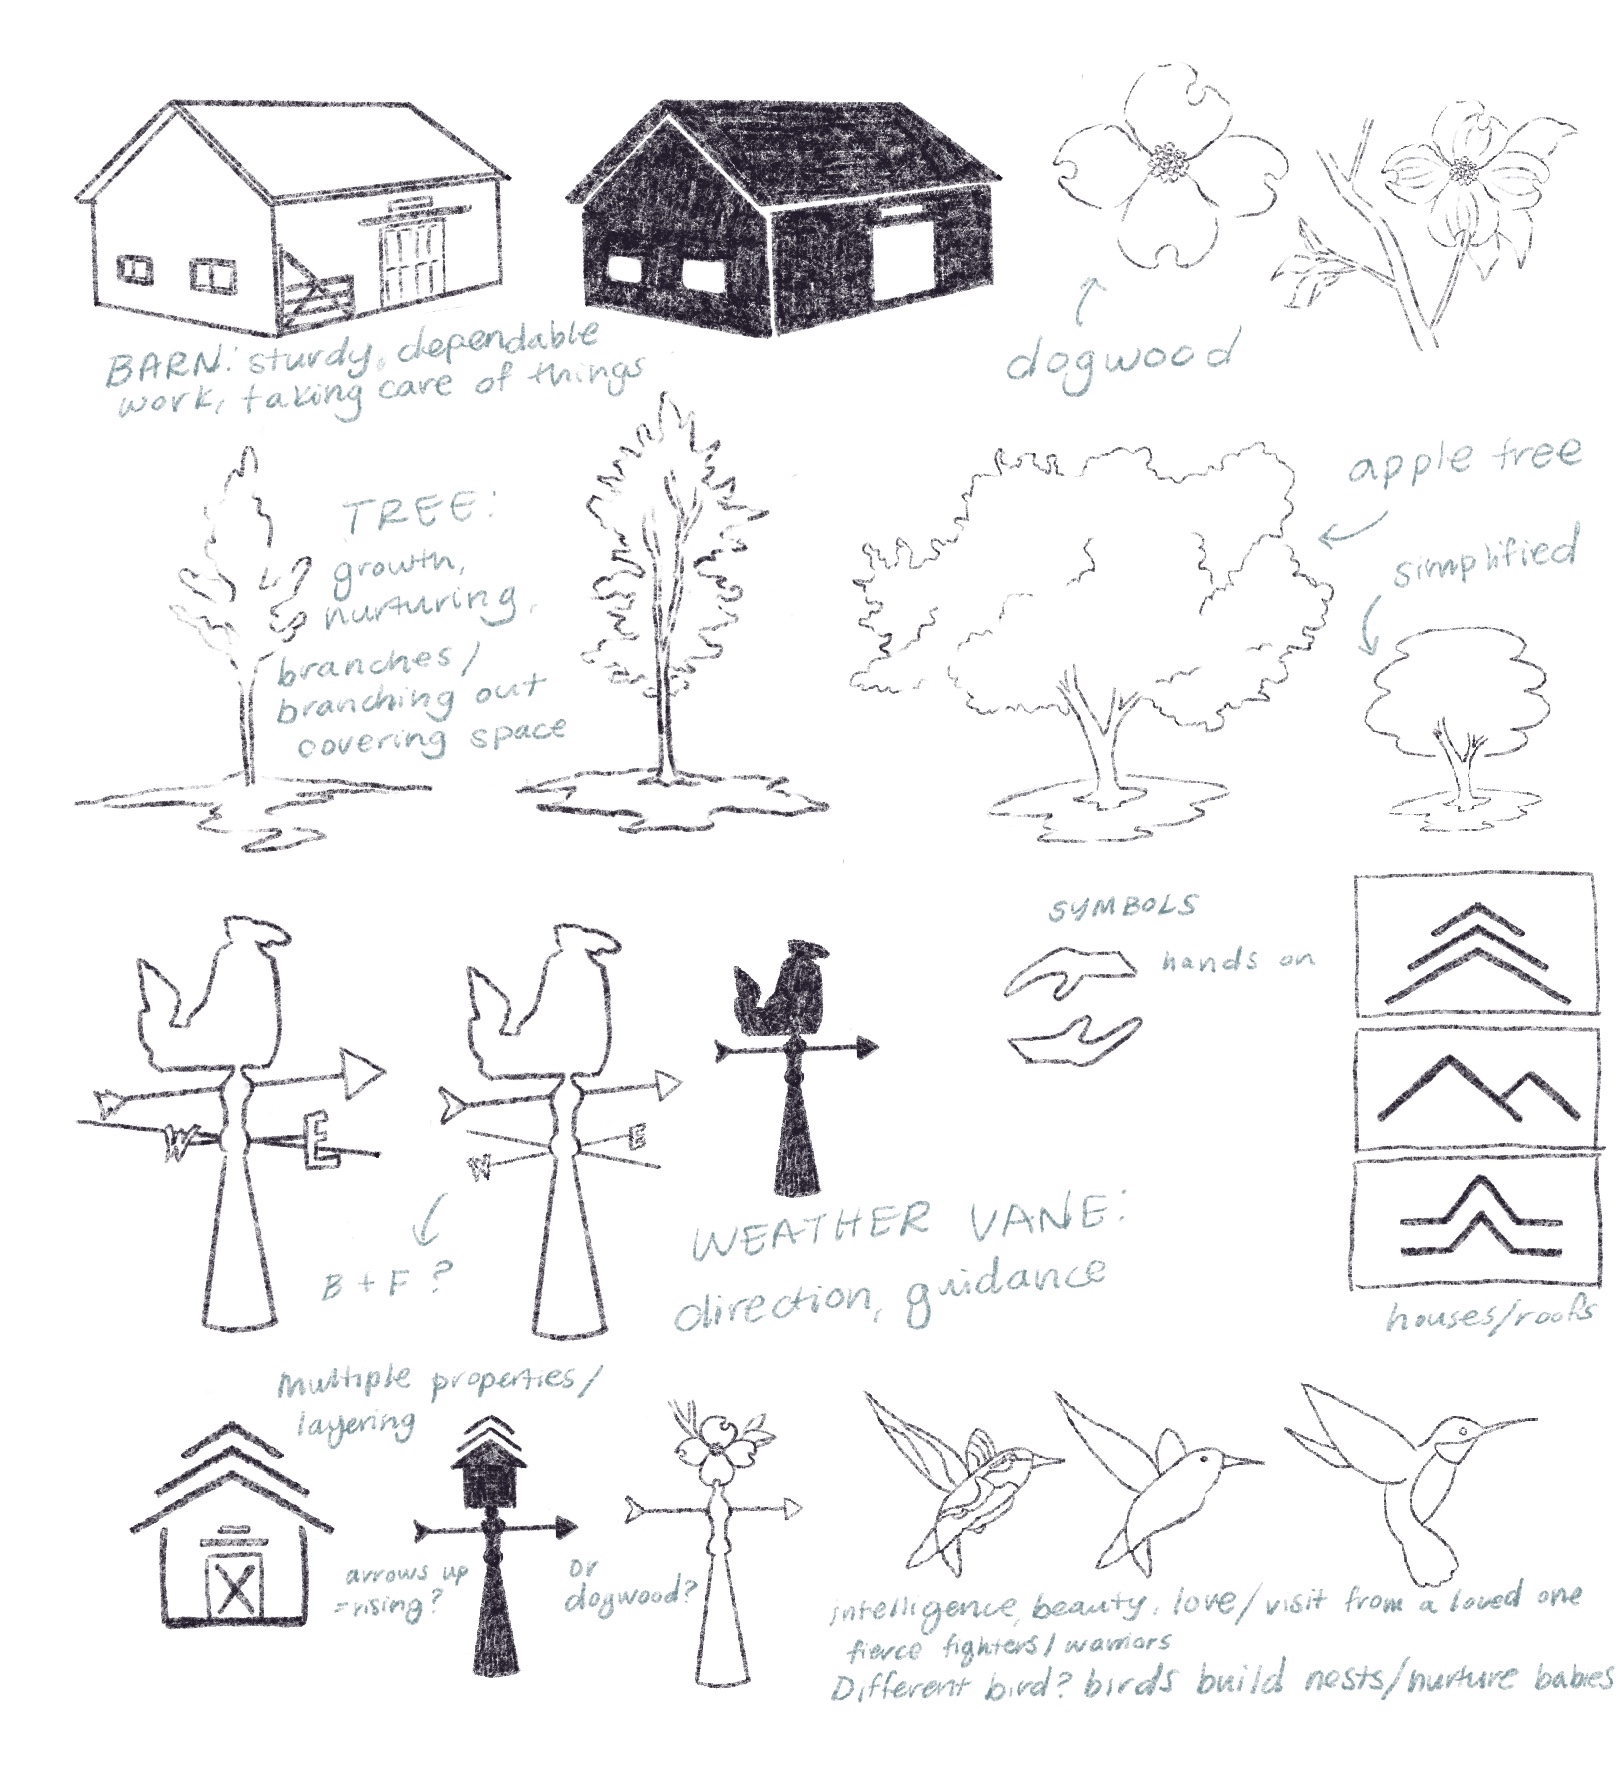 BARN: sturdy, dependable
work, taking care of things
dogwood
TREE:
growth,
nurturing,
branches/
branching out
covering space
apple tree
simplified
SYMBOLS
hands on
W
E
W
E
B + F ?
WEATHER VANE:
direction, guidance
houses/roofs
Multiple properties/
layering
arrows up
=rising?
or
dogwood?
intelligence, beauty, love/visit from a loved one
fierce fighters/warriors
Different bird? birds build nests/nurture babies